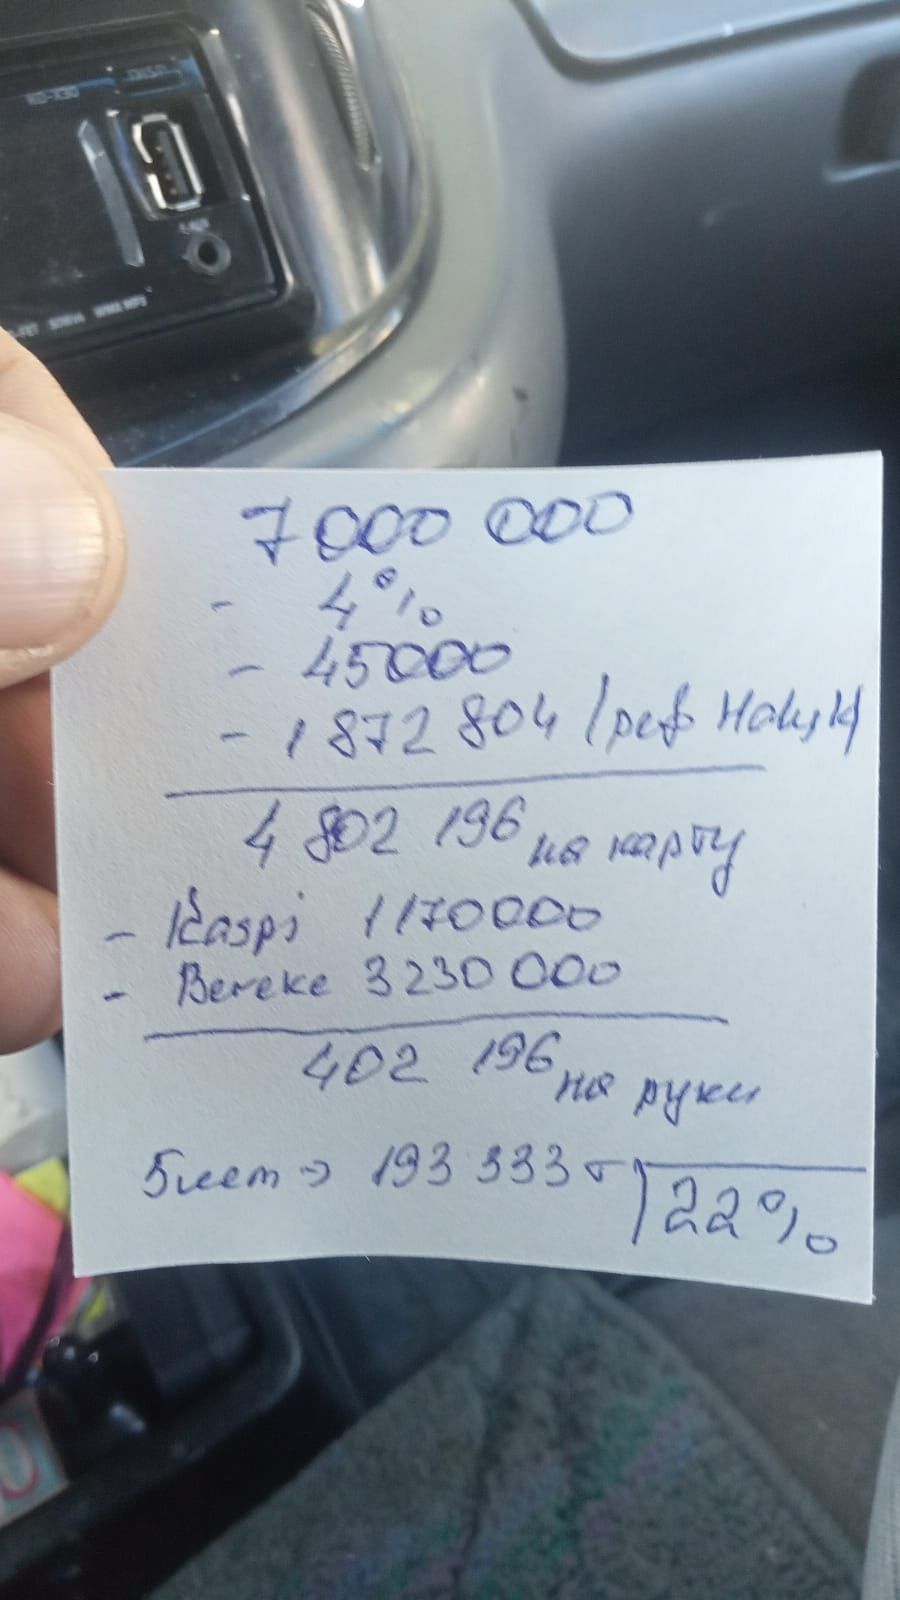 7 000 000
- 4%
- 45000
- 1 872 804 (реф Halyk)
4 802 196 на карту
- Kaspi 1170000
- Bereke 3230 000
402 196 на руки
5 лет => 193 333 т 22%